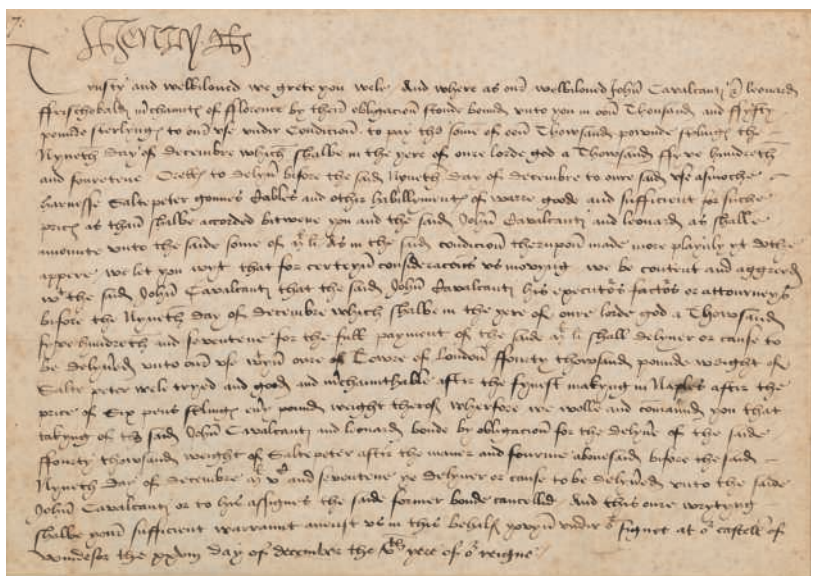 7.
Henry R
Trusty and welbiloved we grete you wele And where as our welbiloved John Cavalcanti & leonard
ffrischobald m'chaunts of fflorence by their obligacion stonde bounde unto you in oon Thousand and ffyfty
pounde sterlings to our use undir Condicion to pay the some of oon Thowsand pounde sterlings the
Nyneth day of decembre which shalbe in the yere of oure lorde god a Thowsand ffyve hundreth
and fouretene Orells to delyv' bifore the said Nyneth day of decembre to oure said use asmoche
harnesse Saltepeter gonnes Cables and other habillements of warre goode and sufficient for suche
prices as than shalbe accorded bitwene you and the said John Cavalcanti and leonard as shalle
amounte unto the saide some of m li As in the said condicion therupon made more playnly yt dothe
appere we let you wyt that for certeyn consideracons us movyng we be content and aggreed
wt the said John Cavalcanti that the said John Cavalcanti his executors factors or attourneys
bifore the Nyneth day of decembre which shalbe in the yere of oure lorde god a Thowsand
fyve hundreth and seventene for the full payment of the saide m li shall delyver or cause to
be delyv'ed unto our use wtyn oure Towre of london ffourty thowsand pounde weight of
Salte peter wele tryed and good and m'chaunthable after the fynest makyng in Naples after the
price of Six pens sterlings ev'y pound weight therof wherfore we wolle and comaund you that
takyng of the said John Cavalcanti and leonard bonde by obligacion for the delyv'e of the saide
ffourty thowsand weight of Saltepeter after the maner and fourme abovesaid bifore the said
Nyneth day of decembre m vc and seventene ye delyver or cause to be delyv'ed unto the saide
John Cavalcanti or to his assignes the saide former bonde cancelled And this oure wrytyng
shalbe your sufficient warraunt anenst us in this behalf yovyn undir or signet at or castell of
wyndesor the xxviii day of decembre the yere of or reigne